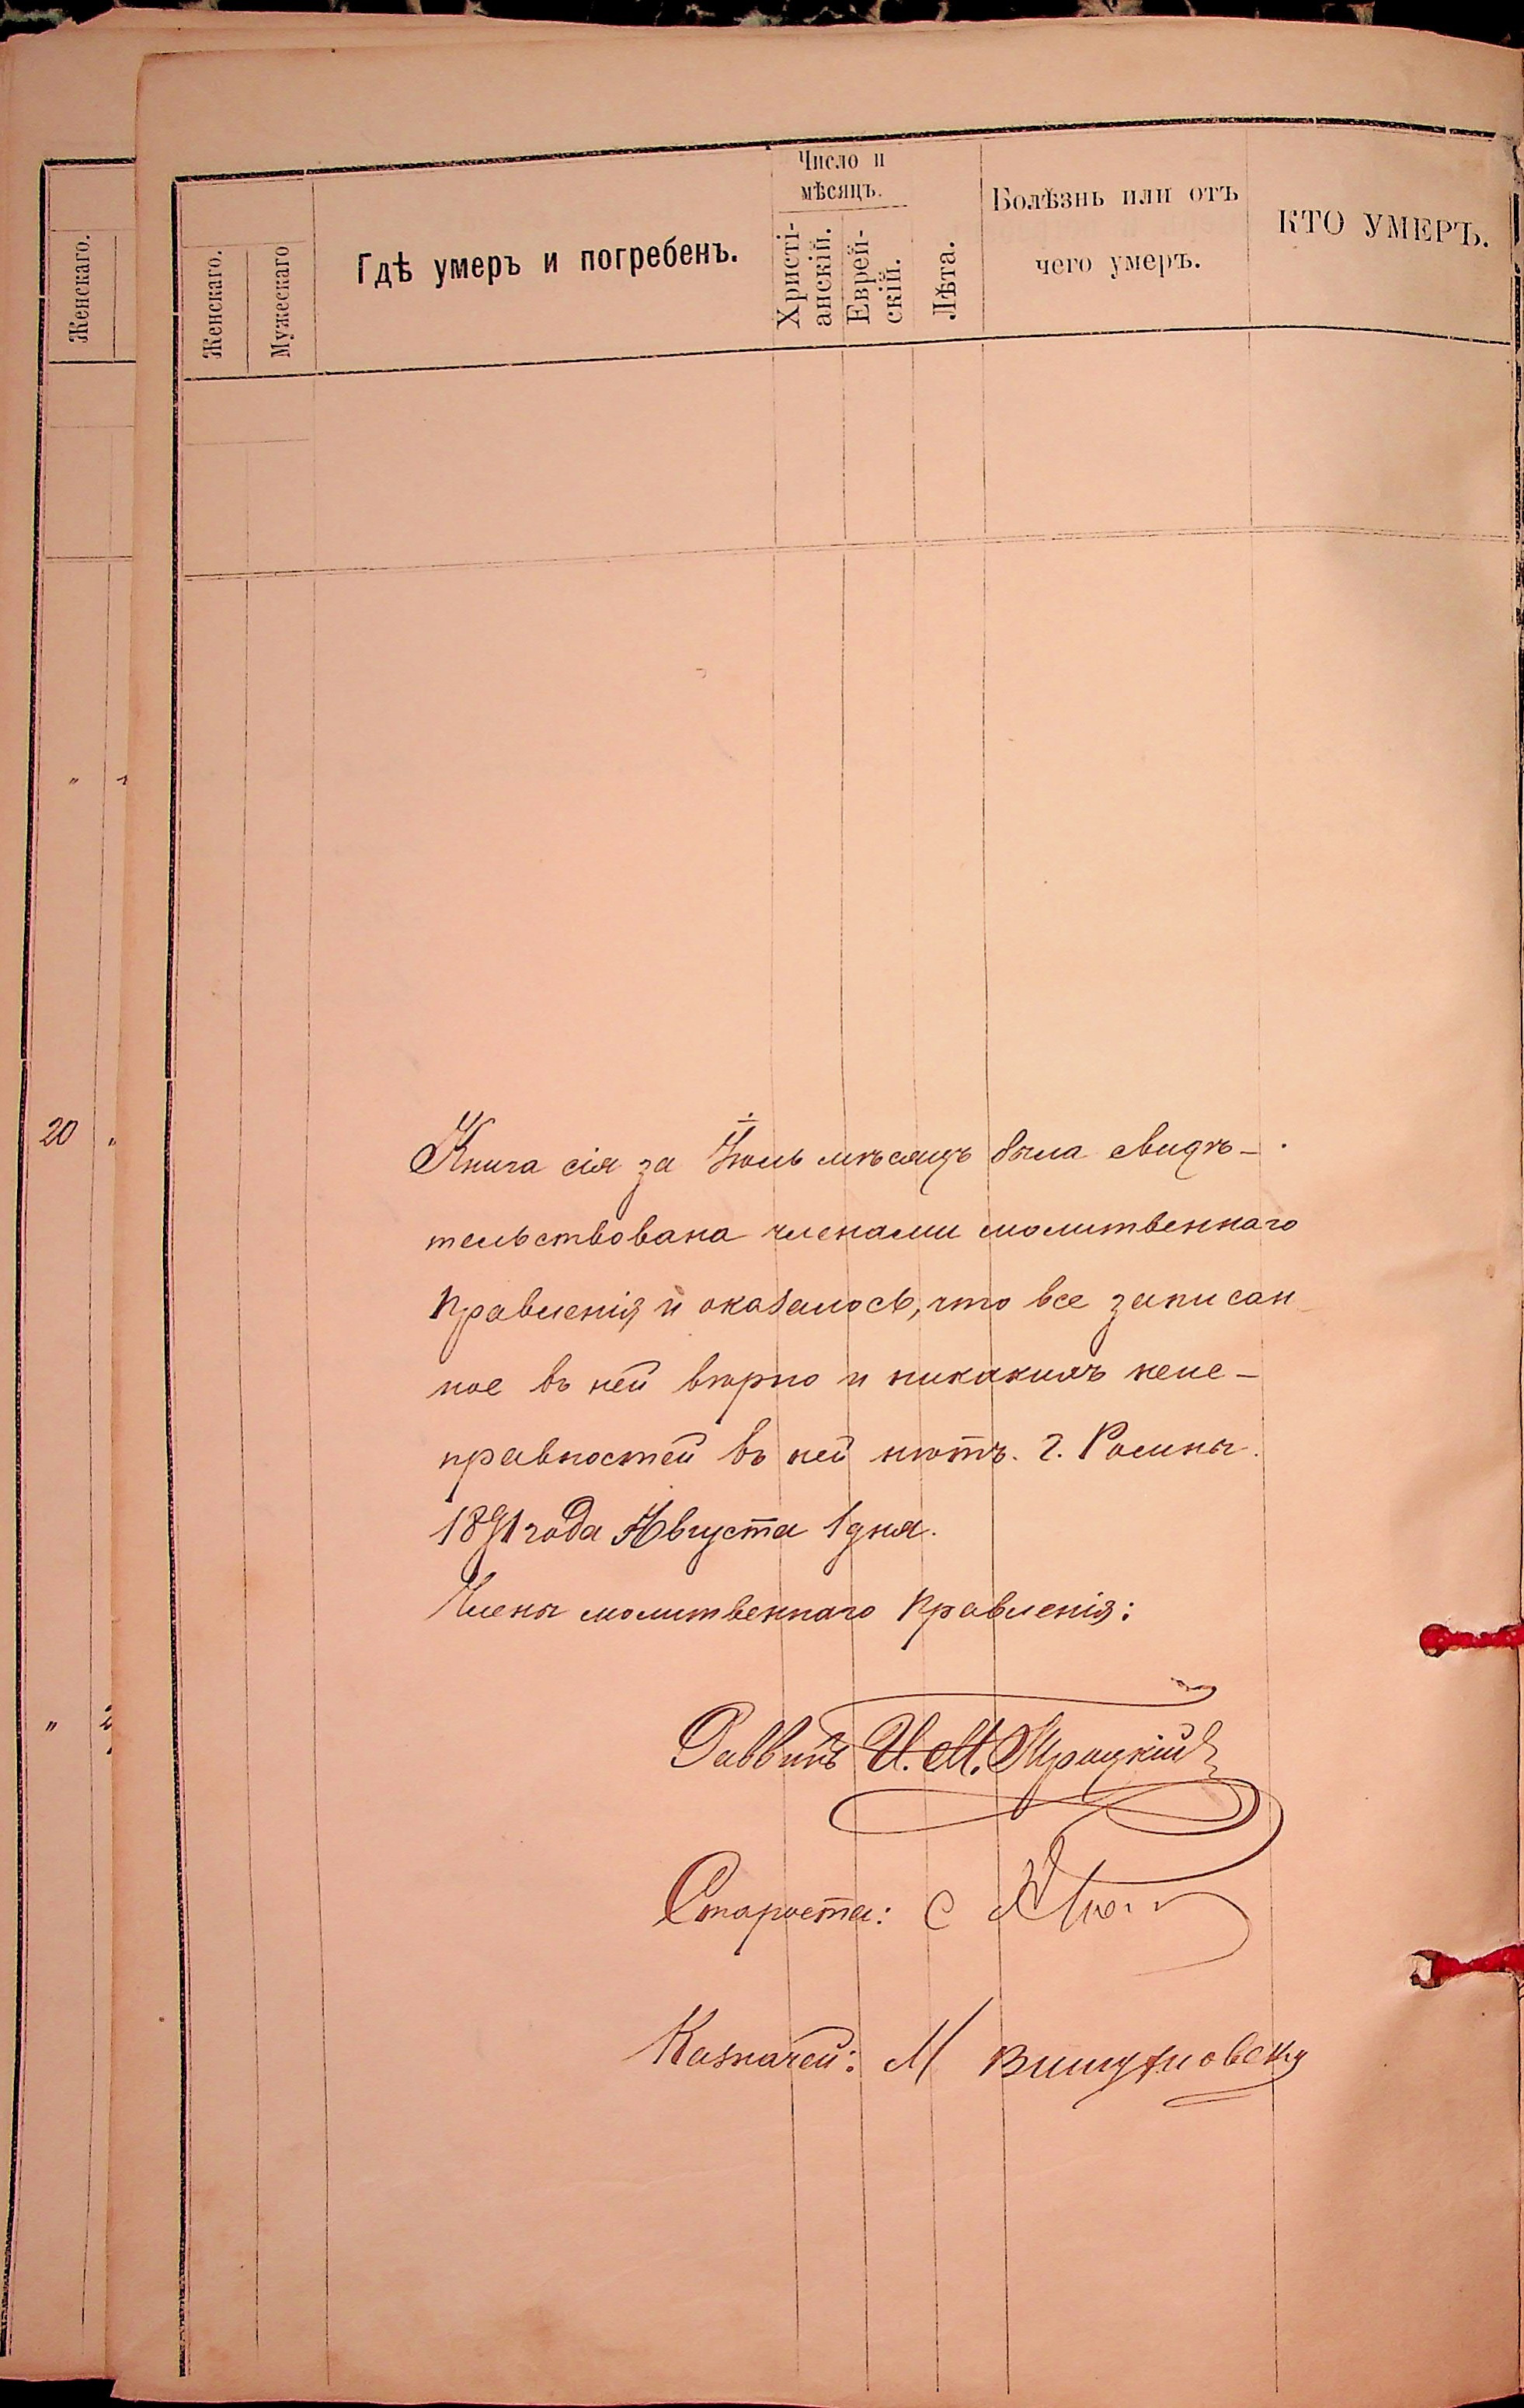 Женскаго.
20
Женскаго.
Мужескаго
Гдѣ умеръ и погребенъ.
Число и
мѣсяцъ.
Христі-
анскій.
Еврей-
скій.
Лѣта.
Болѣзнь или отъ
чего умеръ.
КТО УМЕРЪ.
Книга сія за Іюль мѣсяцъ была свидѣ-
тельствована членами молитвеннаго
правленія и оказалось, что все записан
ное въ ней вѣрно и никакихъ неис-
правностей въ ней нѣтъ. г. Ромны.
1891 года Августа 1 дня.
Члены молитвеннаго правленія:
Раввинъ И. М.
Староста: С
Казначей: М